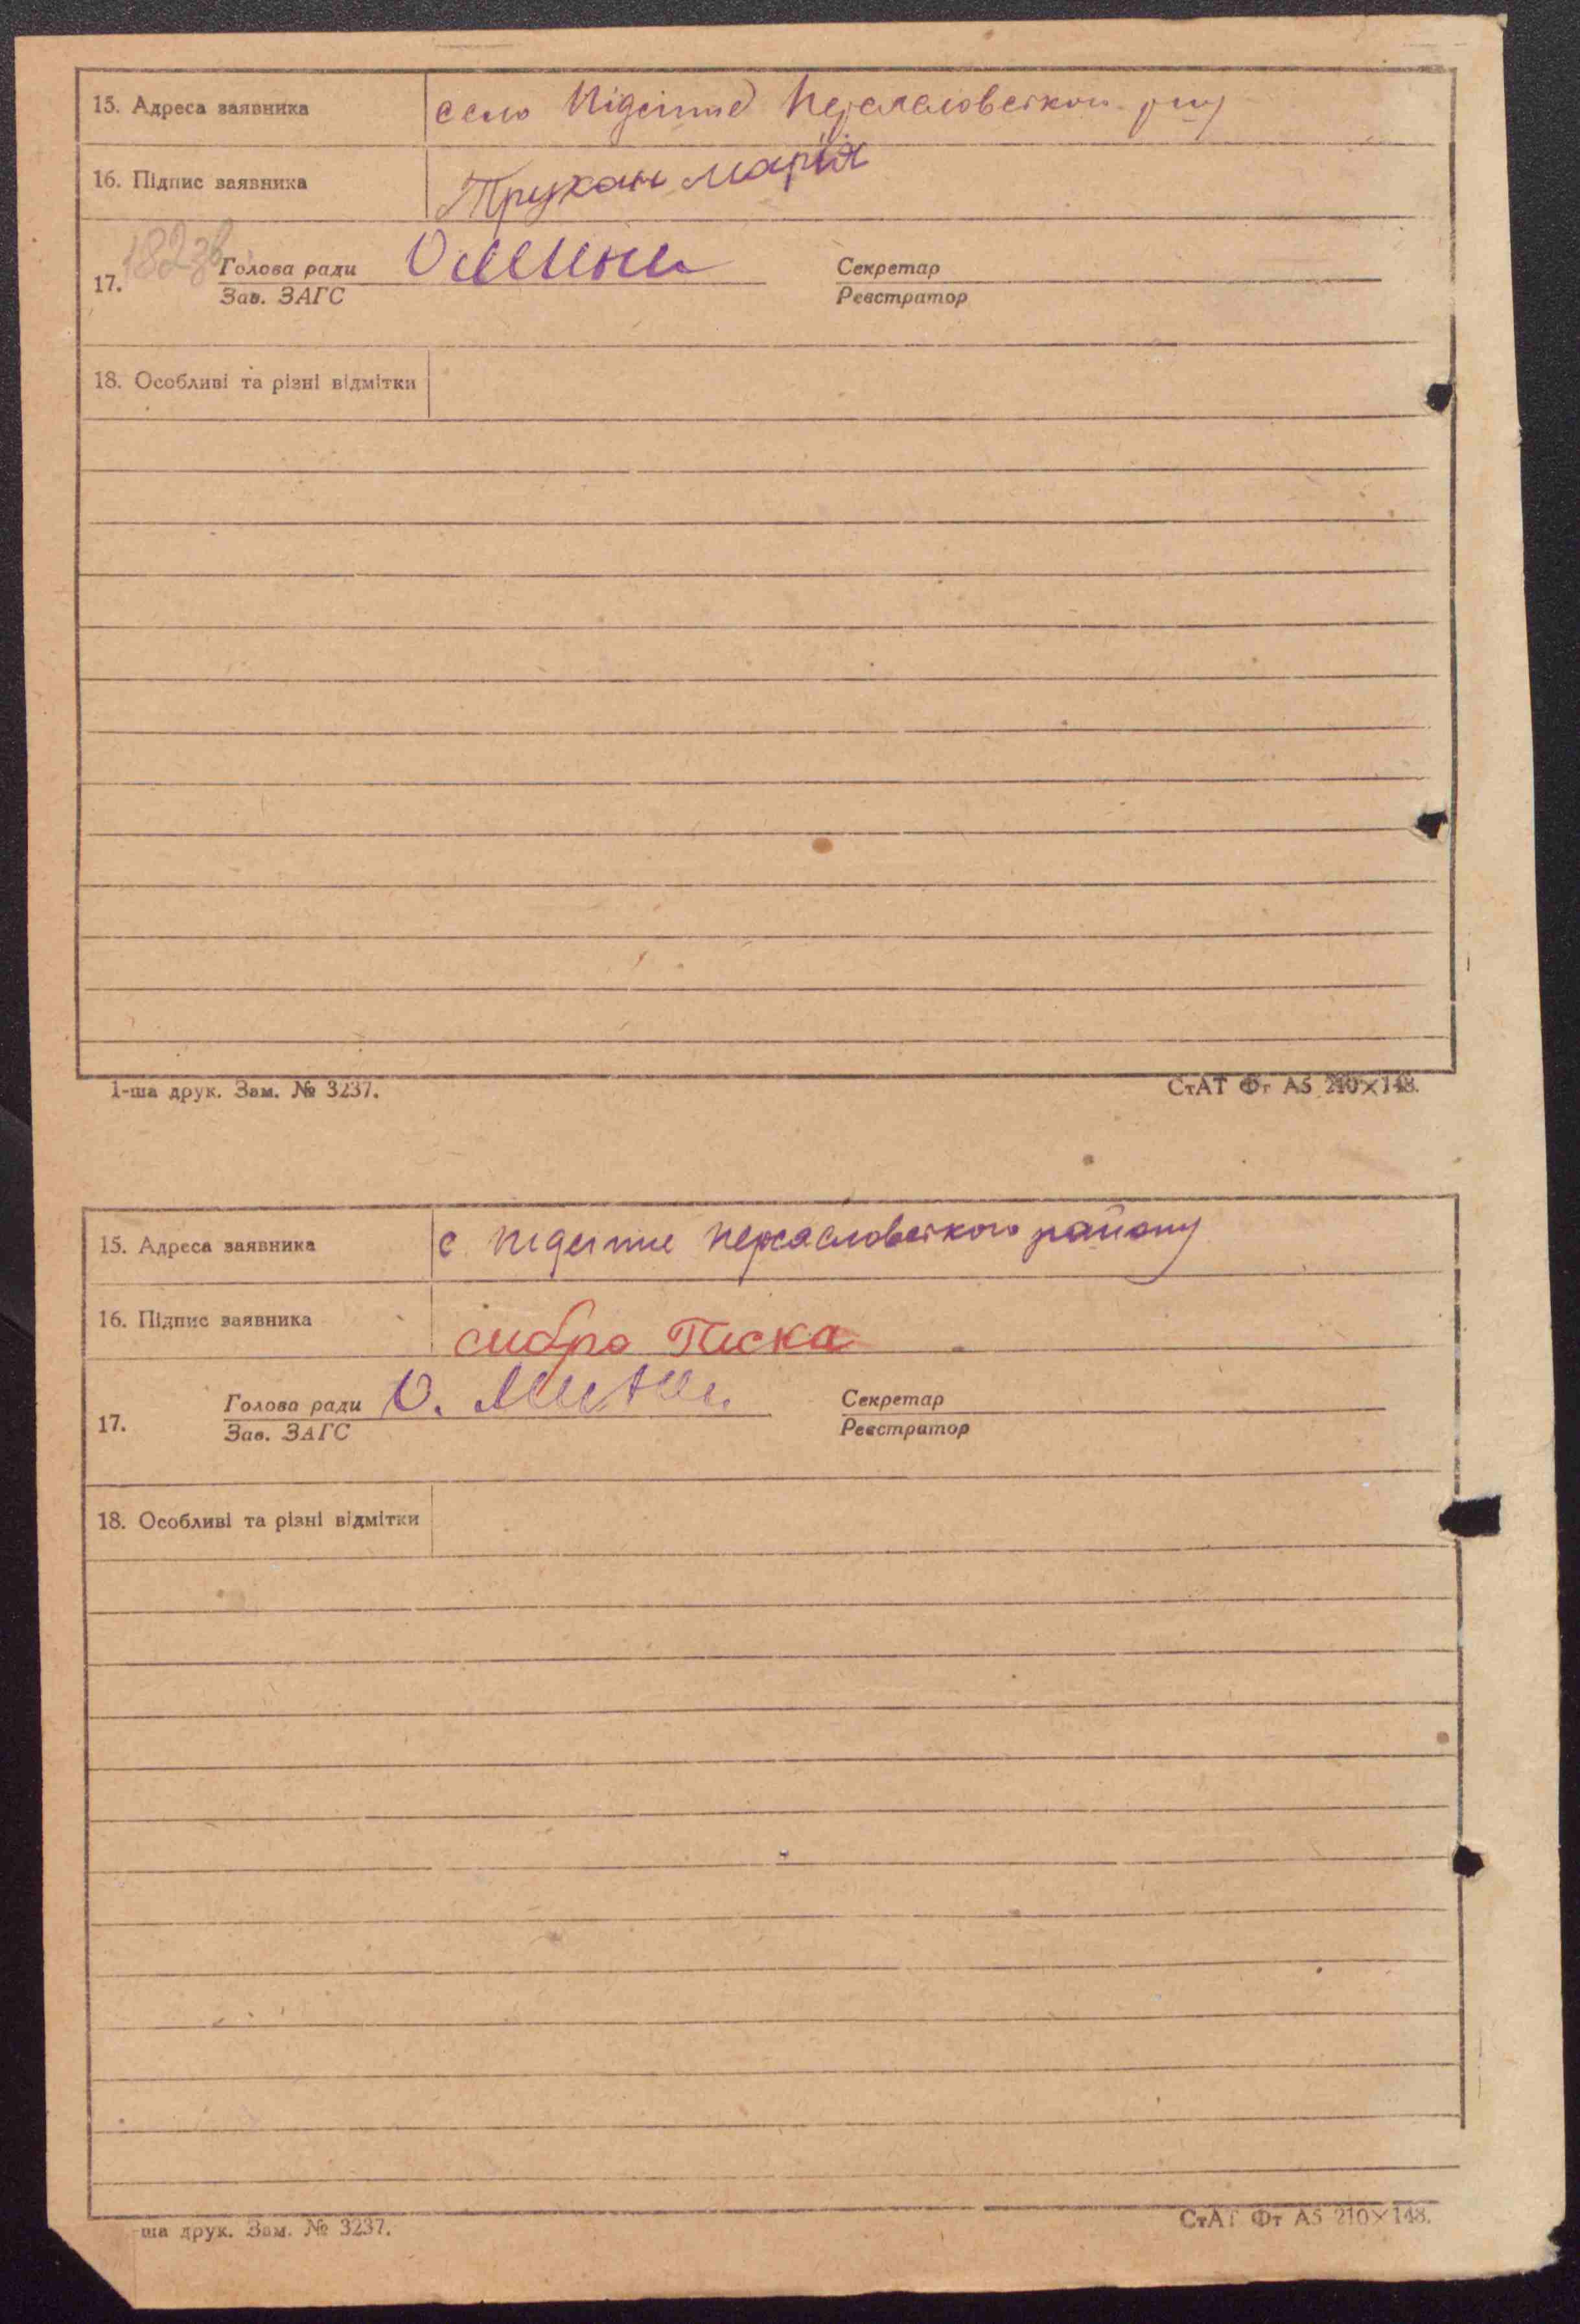 15. Адреса заявника село Підсинне
16. Підпис заявника Трукан марія
182зв
17. Голова ради
Зав. ЗАГС
Секретар
Реєстратор
18. Особливі та різні відмітки
1-ша друк. Зам. № 3237.
СтАТ Фт А5 210×148.
15. Адреса заявника с Підсинне району
16. Підпис заявника
17. Голова ради О.
Зав. ЗАГС
Секретар
Реєстратор
18. Особливі та різні відмітки
-ша друк. Зам. № 3237.
СтАТ Фт А5 210×148.